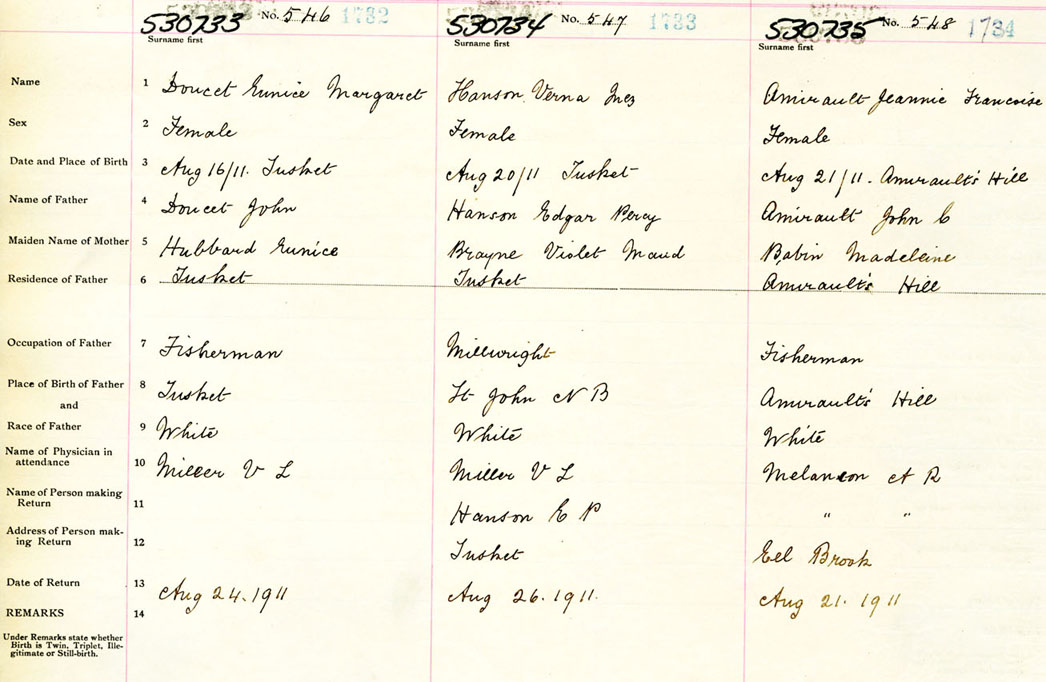 530733 No. 546 1732 530734 No. 547 1733 530735 No. 548 1734
Surname first Surname first Surname first
Name 1 Doucet Eunice Margaret Hanson Verna Inez Amirault Jeannie Francoise
Sex 2 Female Female Female
Date and Place of Birth 3 Aug 16/11. Tusket Aug 20/11 Tusket Aug 21/11. Amirault's Hill
Name of Father 4 Doucet John Hanson Edgar Percy Amirault John C
Maiden Name of Mother 5 Hubbard Eunice Brayne Violet Maud Babin Madeleine
Residence of Father 6 Tusket Tusket Amirault's Hill
Occupation of Father 7 Fisherman Millwright Fisherman
Place of Birth of Father 8 Tusket St John N B Amirault's Hill
and
Race of Father 9 White White White
Name of Physician in
attendance 10 Miller V L Miller V L Melancon A R
Name of Person making
Return 11 Hanson E P " "
Address of Person mak-
ing Return 12 Tusket Eel Brook
Date of Return 13 Aug 24. 1911 Aug 26. 1911. Aug 21. 1911
REMARKS 14
Under Remarks state whether
Birth is Twin, Triplet, Ille-
gitimate or Still-birth.